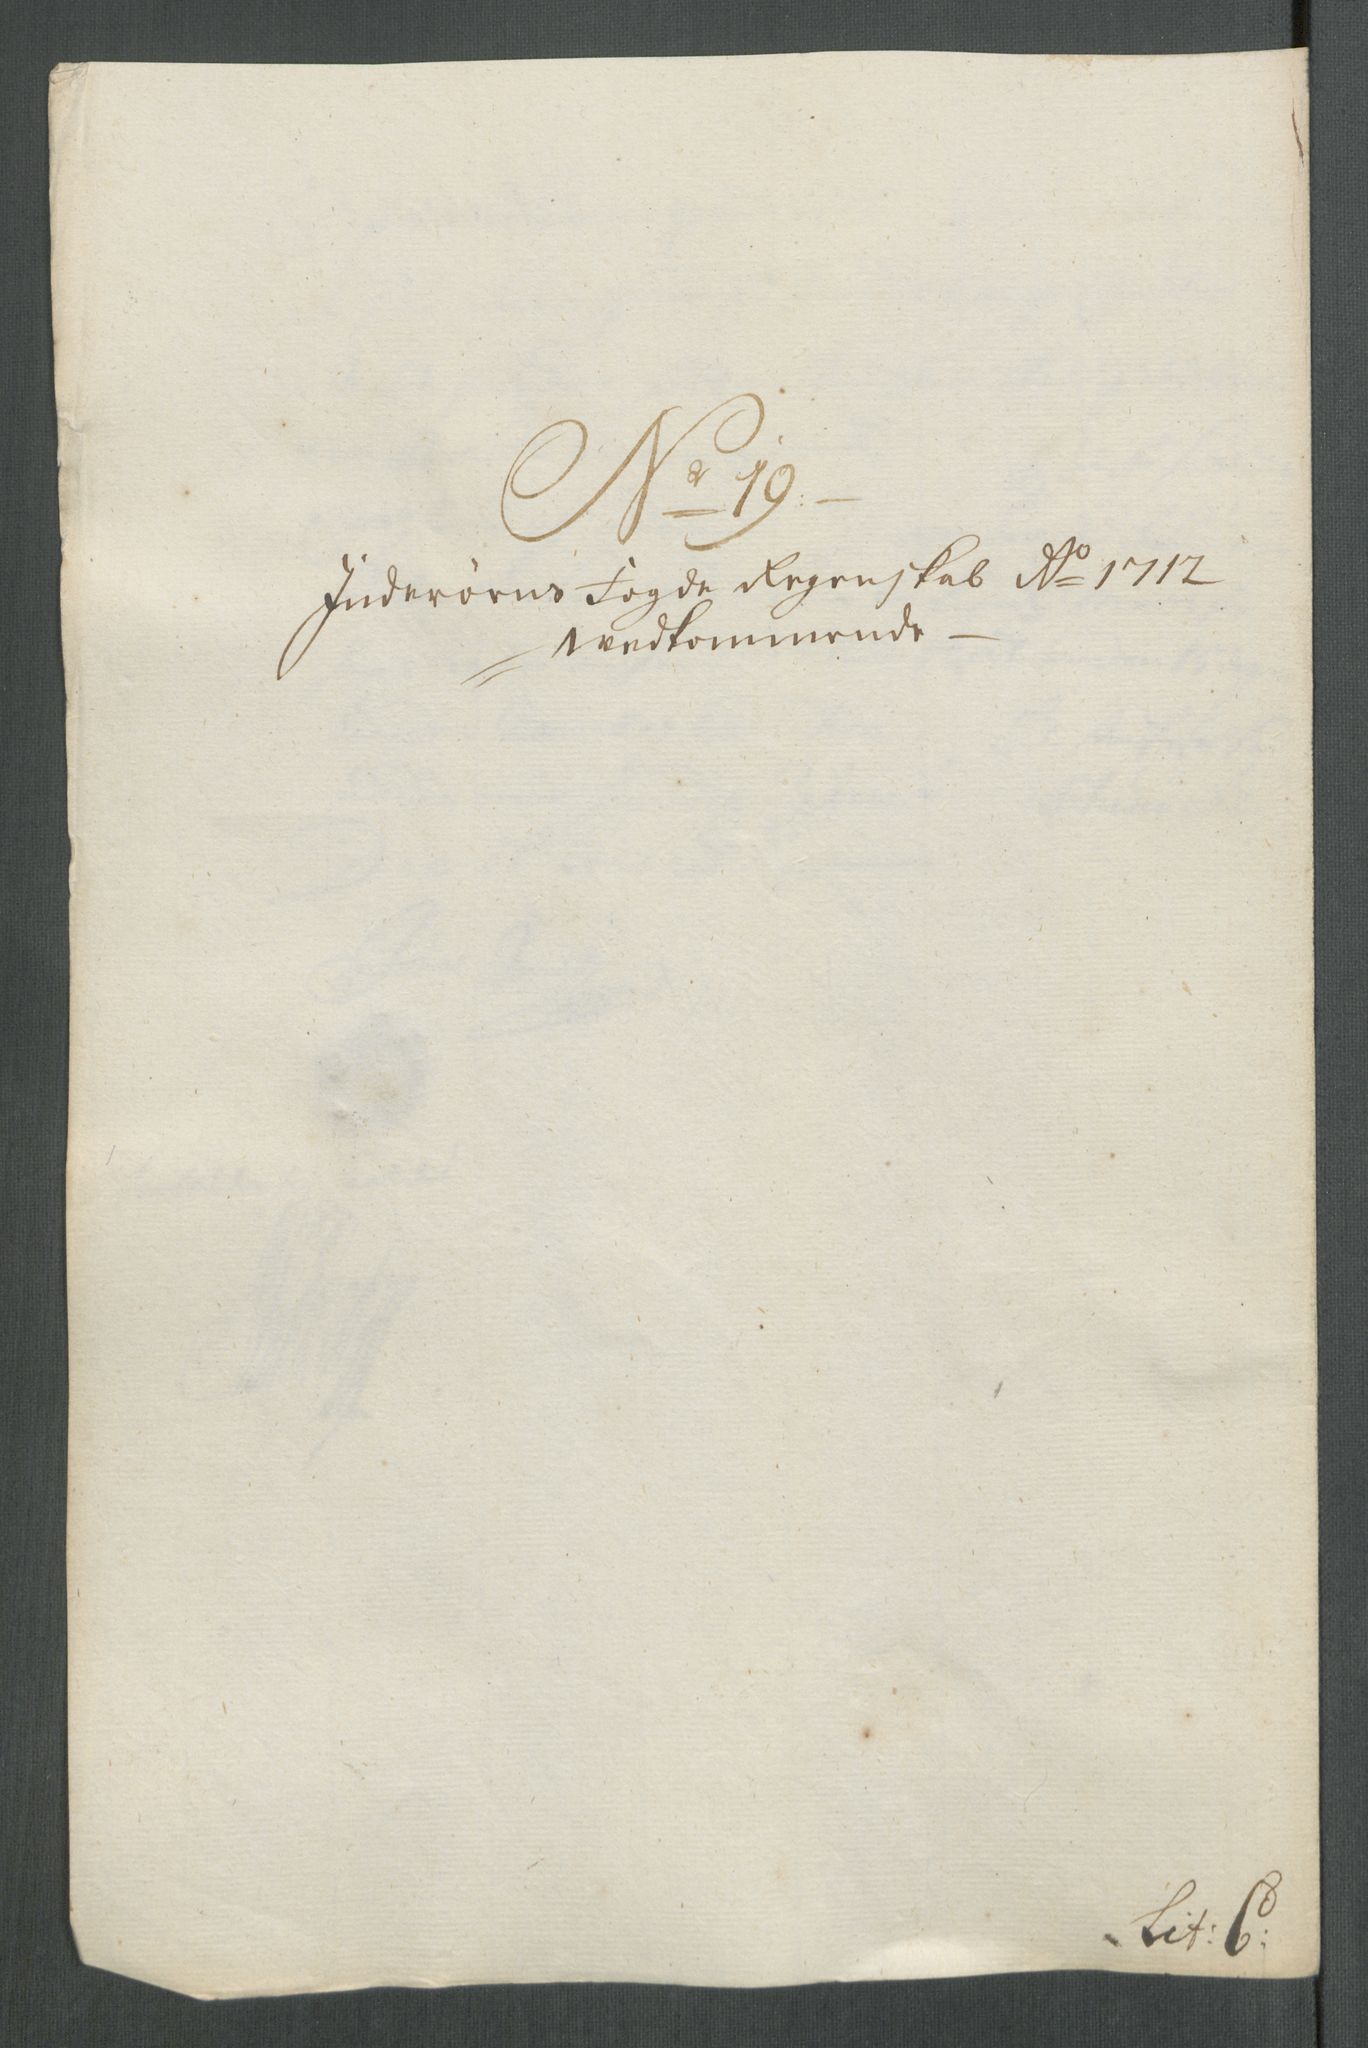 No 19.
Inderöens Fogde Regenskab Ao 1712
vedkommende
Lit: C: